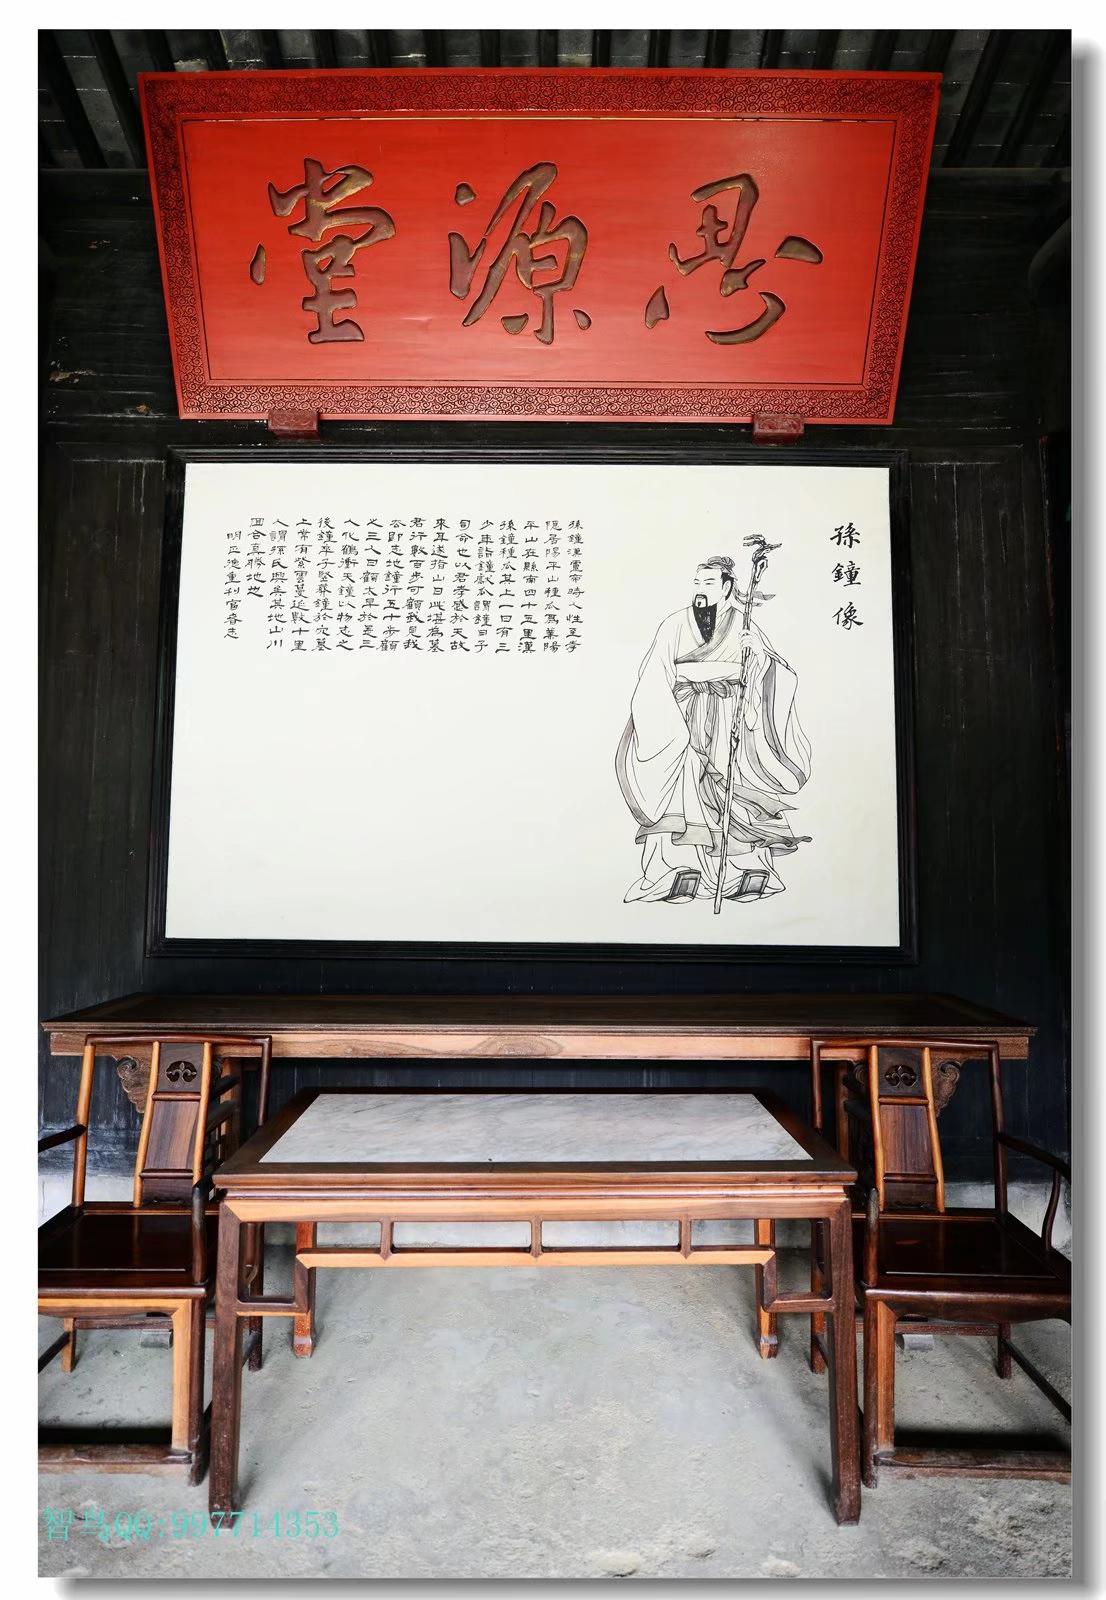 思源堂
孫鐘像
孫鐘漢靈帝時人性至孝
隱居陽平山種瓜爲業陽
平山在縣南四十五里漢
孫鐘種瓜其上一日有三
少年詣鐘獻瓜謂鐘曰予
司命也以君孝感於天故
來耳遂指山曰此堪為墓
君行數百步可顧我見我
去即志地鐘行五十步顧
之三人曰顧太早於是三
人化鶴衝天鐘以物志之
後鐘卒子堅葬鐘於穴墓
上常有紫雲蔓延數十里
人謂孫氏興矣其地山川
回合真勝地也
明正德重刊富春志
智鸟QQ:997714353